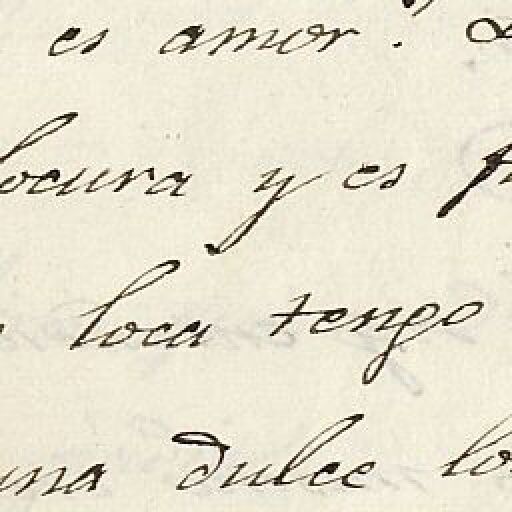 es amor.
locura y es
loca tengo
una dulce